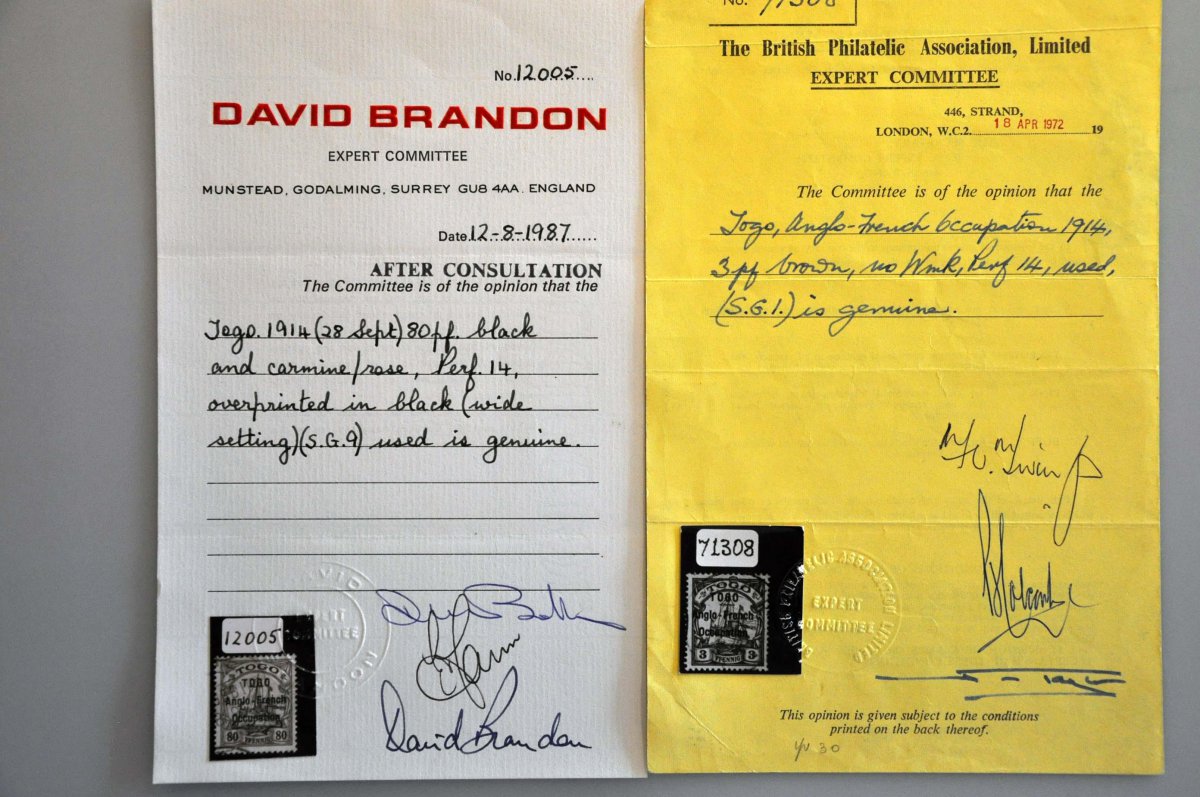 No. 12005
DAVID BRANDON
EXPERT COMMITTEE
MUNSTEAD, GODALMING, SURREY GU8 4AA. ENGLAND
Date 12-8-1987
AFTER CONSULTATION
The Committee is of the opinion that the
Togo. 1914 (28 Sept) 80pf. black
and carmine/rose, Perf. 14,
overprinted in black (wide
setting) (S.G.9) used is genuine.
12005
TOGO
TOGO
Anglo-French
Occupation
80 PFENNIG 80
EXPERT
COMMITTEE
David Brandon
No. 71308
The British Philatelic Association, Limited
EXPERT COMMITTEE
446, STRAND,
LONDON, W.C.2. 18 APR 1972 19
The Committee is of the opinion that the
Togo, Anglo-French Occupation 1914,
3pf brown, no Wmk, Perf 14, used,
(S.G.1.) is genuine.
71308
TOGO
TOGO
Anglo-French
Occupation
3 PFENNIG 3
BRITISH PHILATELIC ASSOCIATION LIMITED
EXPERT
COMMITTEE
This opinion is given subject to the conditions
printed on the back thereof.